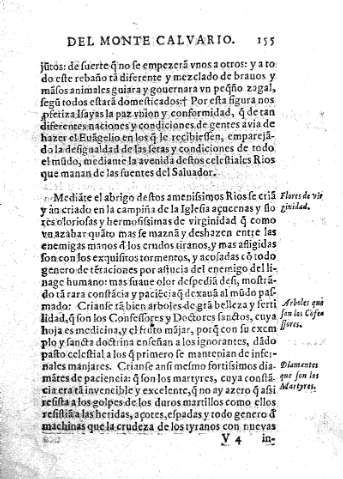 DEL MONTE CALVARIO. 155
jũtos: de suerte q̃ no se empezerã vnos a otros: y a to
do este rebaño tã diferente y mezclado de brauos y
mãsos animales guiara y gouernara vn peq̃ño zagal,
segũ todos estarã domesticados: † Por esta figura nos
p̃fetiza Isayas la paz vnion y conformidad, q̃ de tan
diferentes naciones y condiciones de gentes avia de
hazer el Euãgelio en los q̃ le recibiessen, emparejã-
do la desigualdad de las setas y condiciones de todo
el mũdo, mediante la avenida destos celestiales Rios
que manan de las fuentes del Saluador.
Mediãte el abrigo destos amenissimos Rios se criã
y ãn criado en la campiña de la Iglesia açucenas y flo
res olorosas y hermosissimas de virginidad q̃ como
vn azabar quãto mas se mazna y deshazen entre las
enemigas manos d̃ los crudos tiranos, y mas afligidas
son con los exquisitos tormentos, y acosadas cõ todo
genero de tẽtaciones por astucia del enemigo del li-
nage humano: mas suaue olor despedia desi, mostrã-
do tã rara constãcia y paciẽcia q̃ dexauã al mũdo pas-
mado: Crianse tã bien arboles de grã belleza y ferti
lidad, q̃ son los Confessores y Doctores sanctos, cuya
hoja es medicina, y el fruto mãjar, porq̃ con su exem
plo y sancta doctrina enseñan a los ignorantes, dãdo
pasto celestial a los q̃ primero se mantenian de infer-
nales manjares. Crianse ansi mesmo fortissimos dia-
mãtes de paciencia: q̃ son los martyres, cuya constã-
cia era tã inuencible y excelente, q̃ no ay azero q̃ assi
resista a los golpes de los duros martillos como ellos
resistiã a las heridas, açotes, espadas y todo genero d̃
machinas que la crudeza de los tyranos con nueuas
V 4 in-
Flores de vir
ginidad.
Arboles que
son los Cõfe-
ssores.
Diamantes
que son los
Martyres.